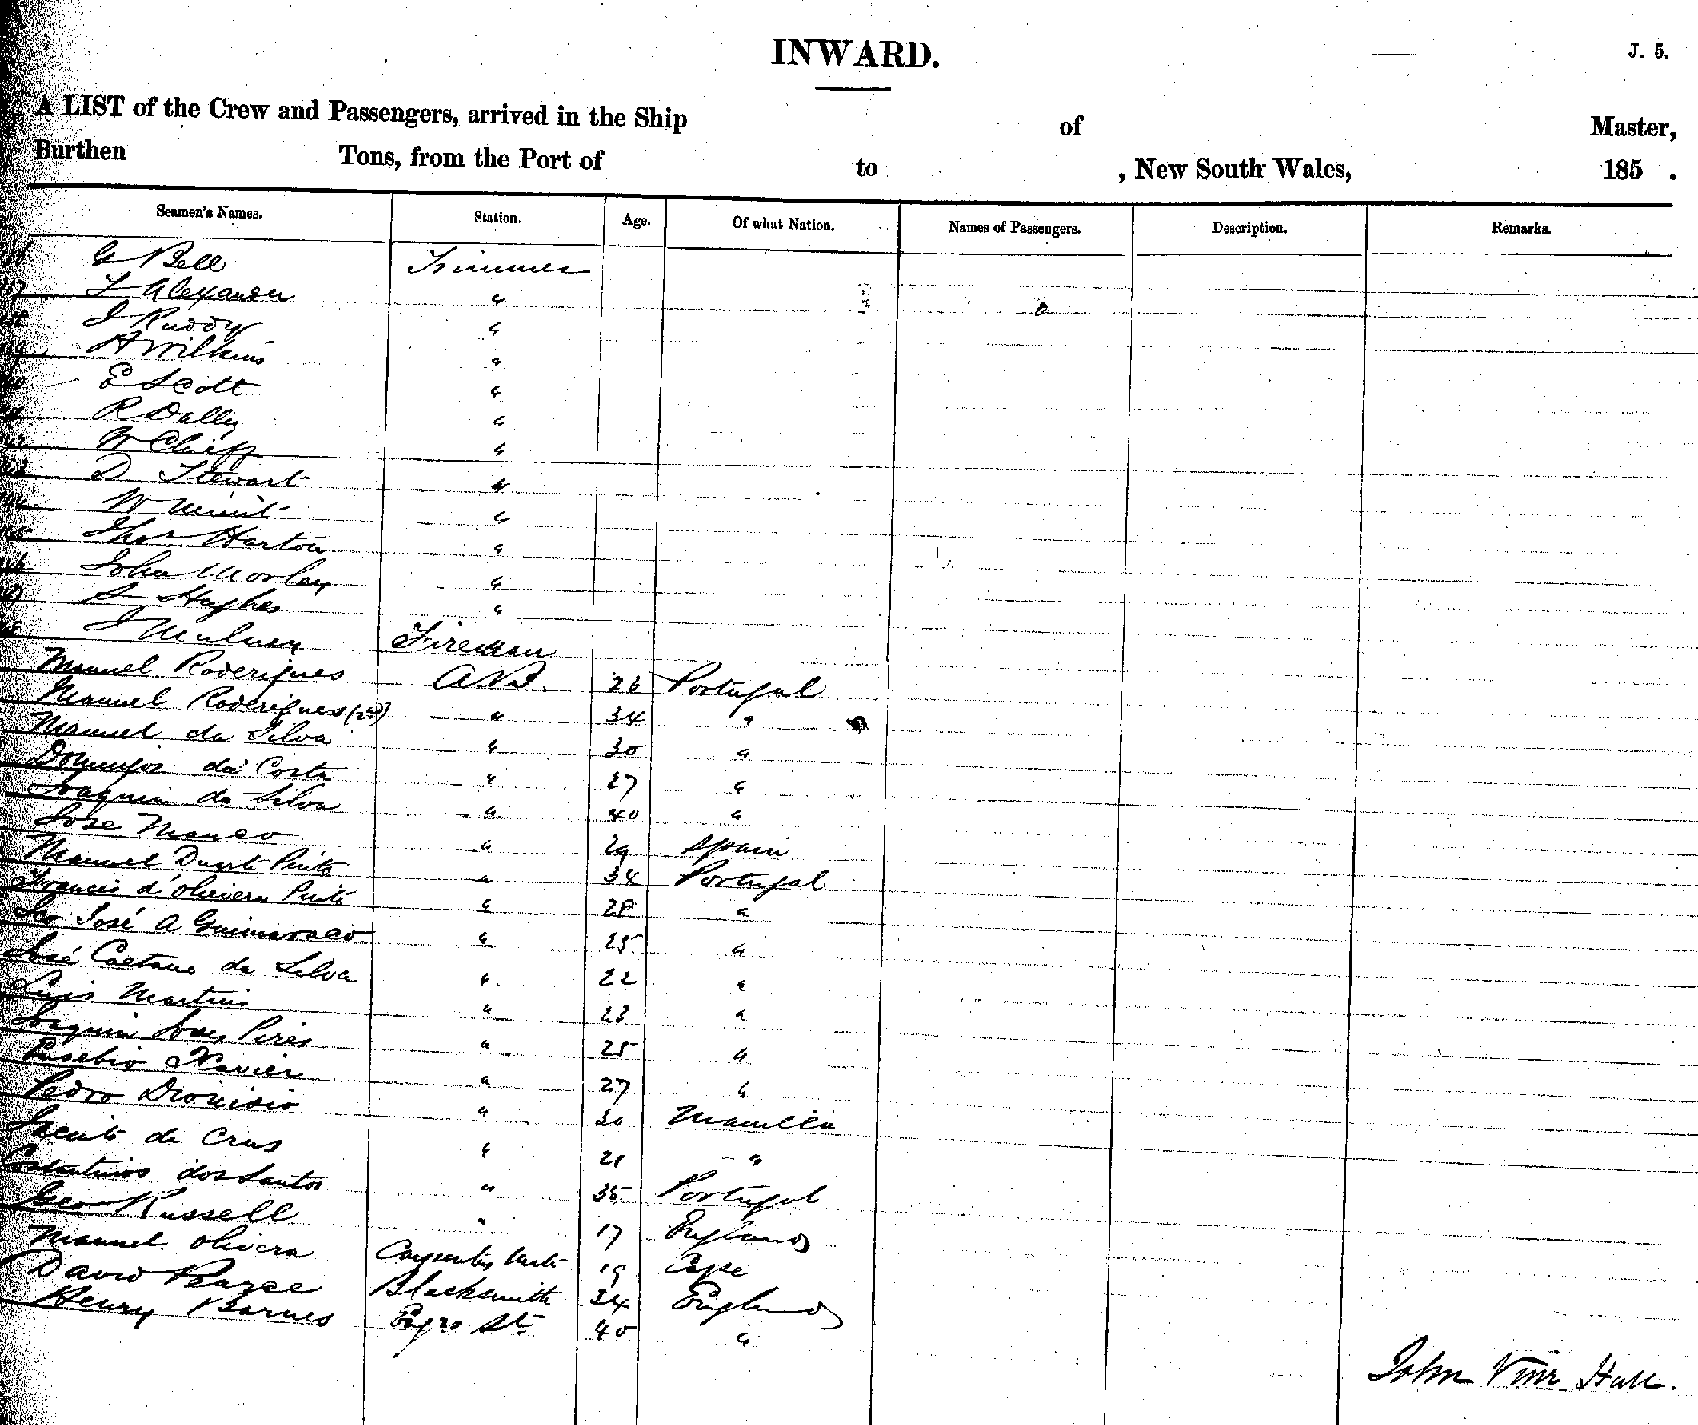 INWARD.
J. 5.
A LIST of the Crew and Passengers, arrived in the Ship of Master,
Burthen Tons, from the Port of to , New South Wales, 185 .
Seamen's Names. Station. Age. Of what Nation. Names of Passengers. Description. Remarks.
G Bell Trimmer
T Alexander "
J Ruddy "
H Wilkins "
E Scott "
R Dalley "
W "
D Stewart "
W "
Thos Harton "
John Morley "
S Hughes "
J Fireman
Manuel Roderigues A.B. 26 Portugal
Manuel Roderigues (2nd) " 34 "
Manuel da Silva " 30 "
Domingos da Costa " 27 "
Joaquin da Silva " 40 "
Jose " 29 Spain
Manuel Duart Pinto " 34 Portugal
Francis d'Oliviera Pinto " 28 "
José A Guimaraeo " 25 "
José Caetano da Silva " 22 "
Luis Martins " 23 "
Joaquin Pires " 25 "
Eusebio Xavier " 27 "
Pedro Dionisio " 30 Manilla
da Crus " 21 "
dos Santos " 35 Portugal
Geo Russell " 17 England
Manuel Olivera Carpenters 19 Cape
David Pearce Blacksmith 34 England
Henry Barnes St. 40 "
John Vine Hall.